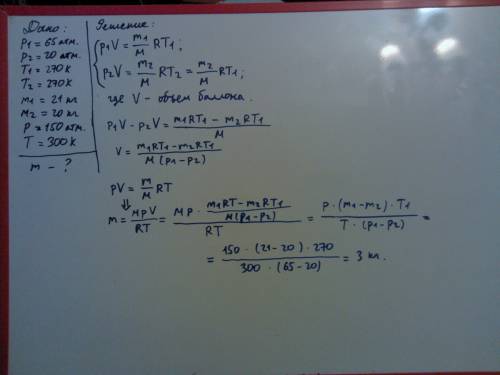 Дано:
p1 = 65 атм.
p2 = 20 атм.
T1 = 270 K
T2 = 270 K
m1 = 21 кг
m2 = 20 кг
P = 150 атм.
T = 300 K
m - ?
Решение:
{ p1V = m1/M RT1;
p2V = m2/M RT2 = m2/M RT1;
где V - объем баллона.
p1V - p2V = (m1RT1 - m2RT1)/M
V = (m1RT1 - m2RT1)/(M(p1-p2))
pV = m/M RT
⇓
m = MPV/RT = (MP · (m1RT - m2RT1)/(M(p1-p2)))/RT = (P · (m1-m2) · T1)/(T · (p1-p2)) =
= (150 · (21-20) · 270)/(300 · (65-20)) = 3 кг.